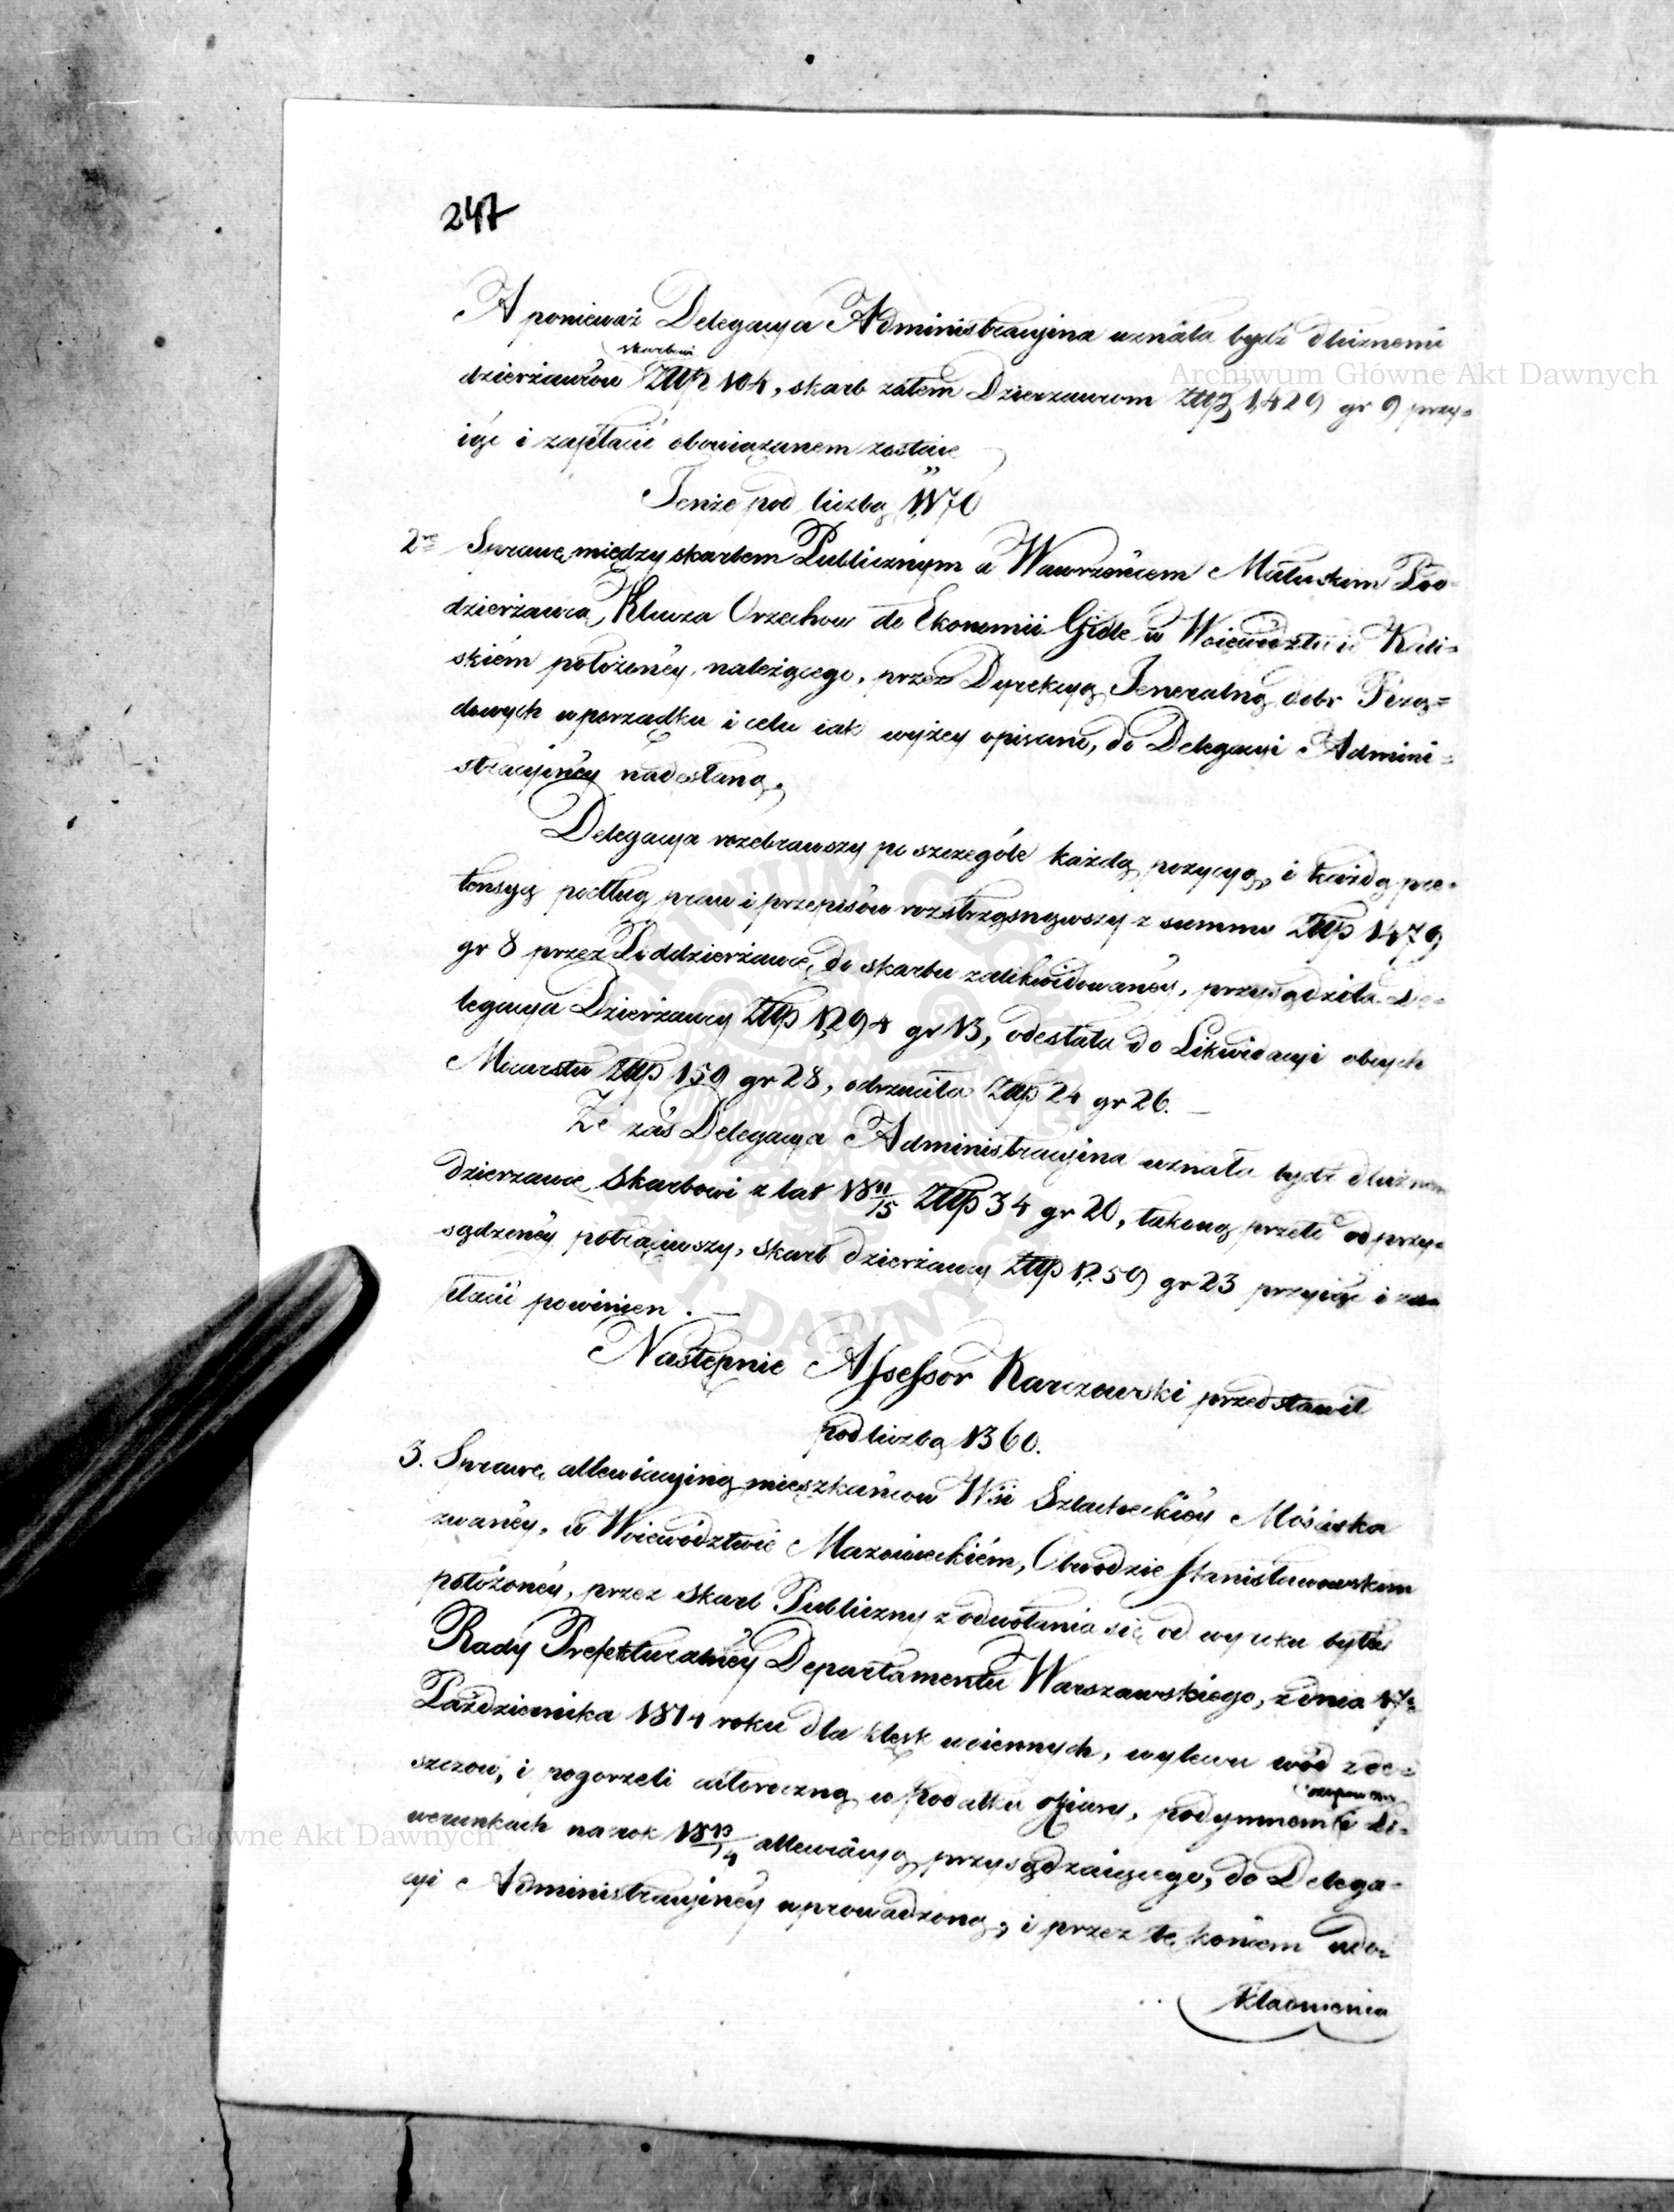 247
A ponieważ Delegacya Administracyina uznała bydź dłużnemi
skarbowi
dzierżawców Złtp 104, skarb zatem Dzierzawcom Złtp 1,429 gr 9 przy=
iąć i zapłacić obowiązanem zostaie
Tenże pod liczbą 1,170
2re Sprawę między skarbem Publicznym a Wawrzeńcem Małuskim Pod-
dzierżawcą Klucza Orzechow do Ekonomii Gidle w Woiewództwie Kali-
skiém położonéy, należącego, przez Dyrekcyą Jeneralną dobr Rzą=
dowych w porządku i celu iak wyżey opisano, do Delegacyi Admini=
stracyinéy nadesłaną.
Delegacya rozebrawszy po szczególe każdą pozycyą, i każdą pre=
tensyą podług praw i przepisów rozstrzgsnąwszy z summy Złtp 1479
gr 8 przez Poddzierżawcę do skarbu zalikwidowanéy, przysądziła De=
legacya Dzierżawcy Złtp 1,294 gr 13, odesłała do Likwidacyi obcych
Mocarstw Złtp 159 gr 28, odrzuciła Złtp 24 gr 26. —
Że zaś Delegacya Administracyina uznała bydź dłużnem
dzierzawcę Skarbowi z lat 1811/15 Złtp 34 gr 20, takową przeto od przy=
sądzonéy potrąciwszy, Skarb dzierżawcy Złtp 1,259 gr 23 przyiąć i za=
płacić powinien. —
Następnie Assessor Karczewski przedstawił
pod liczbą 1360.
3. Sprawę allewiacyiną mieszkańcow Wsi Szlacheckiéy Mościska
zwanéy, w Woiewództwie Mazowieckiém, Obwodzie Stanisławowskim
położonéy, przez Skarb Publiczny z odwołania się od wyroku byłéy
Rady Prefekturalnéy Departamentu Warszawskiego, z dnia 17o
Października 1814 roku dla klęsk woiennych, wylewu wód z de=
szczow, i pogorzeli całoroczną w Podatku ofiary, podymnem i Li=
werunkach na rok 1813/14 allewiacyą przysądzaiącego, do Delega=
cyi Administracyinéy wprowadzoną, i przez tę końcem udo=
kładnienia
Archiwum Główne Akt Dawnych
Archiwum Główne Akt Dawnych